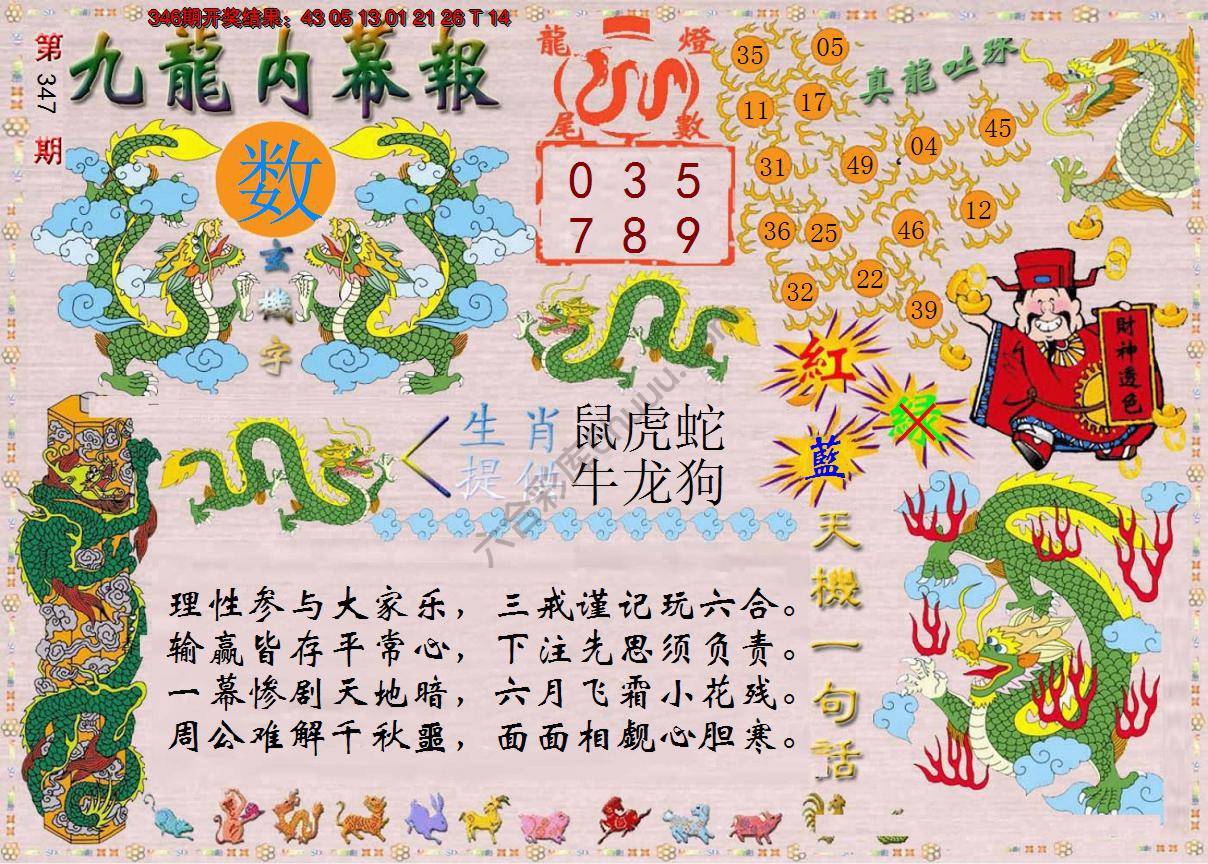 346期开奖结果：43 05 13 01 21 26 T 14
第347期
九龍内幕報
数
玄機字
龍燈
尾數
0 3 5
7 8 9
真龍吐珠
35 05
11 17
31 49 04 45
36 25 46 12
32 22 39
財神透色
紅
绿
藍
生肖 鼠虎蛇
提供 牛龙狗
天機一句話
理性参与大家乐，三戒谨记玩六合。
输赢皆存平常心，下注先思须负责。
一幕惨剧天地暗，六月飞霜小花残。
周公难解千秋噩，面面相觑心胆寒。